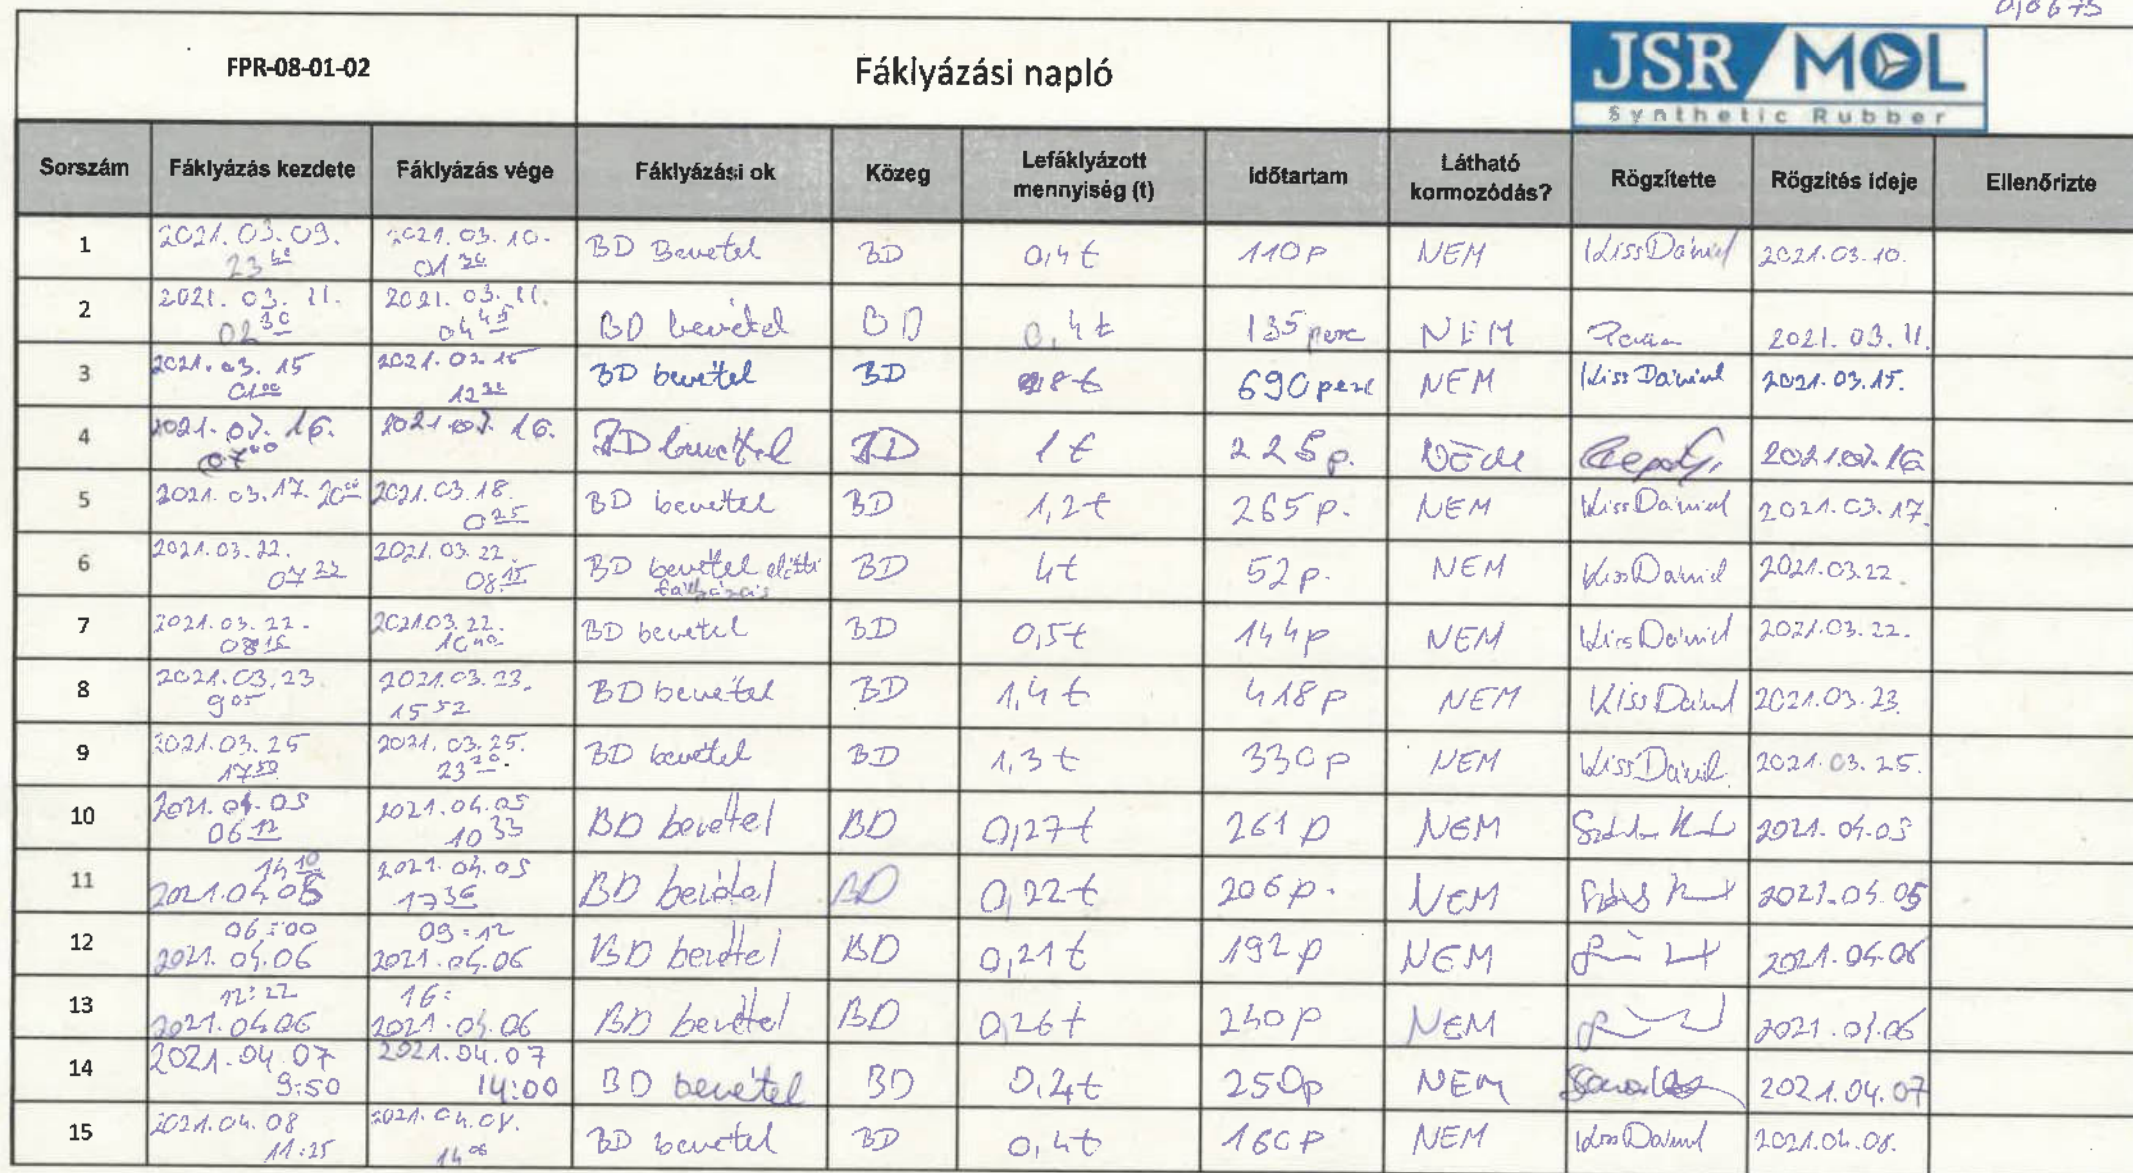 0,0675
FPR-08-01-02 Fáklyázási napló JSR MOL
Synthetic Rubber
Sorszám Fáklyázás kezdete Fáklyázás vége Fáklyázási ok Közeg Lefáklyázott mennyiség (t) Időtartam Látható kormozódás? Rögzítette Rögzítés ideje Ellenőrizte
1 2021.03.09. 23 2021.03.10. 01 30 BD Bevétel BD 0,4t 110p NEM Kiss Dániel 2021.03.10.
2 2021.03.11. 02 30 2021.03.11. 04 45 BD bevétel BD 0,4t 135 perc NEM 2021.03.11.
3 2021.03.15 01 00 2021.03.15 12 30 BD bevétel BD 8t 690 perc NEM Kiss Dániel 2021.03.15.
4 2021.03.16. 07 00 2021.03.16. BD bevétel BD 1t 225p. NEM 2021.03.16
5 2021.03.17. 20 00 2021.03.18. 0 25 BD bevétel BD 1,2t 265p. NEM Kiss Dániel 2021.03.17.
6 2021.03.22. 07 22 2021.03.22. 08 15 BD bevétel előtti fáklyázás BD 4t 52p. NEM Kiss Dániel 2021.03.22.
7 2021.03.22. 08 16 2021.03.22. 10 40 BD bevétel BD 0,5t 144p NEM Kiss Dániel 2021.03.22.
8 2021.03.23. 9 05 2021.03.23. 15 52 BD bevétel BD 1,4t 418p NEM Kiss Dániel 2021.03.23.
9 2021.03.25 17 50 2021.03.25. 23 20 BD bevétel BD 1,3t 330p NEM Kiss Dániel 2021.03.25.
10 2021.04.05 06 12 2021.04.05 10 33 BD bevétel BD 0,27t 261p NEM 2021.04.05
11 14 10 2021.04.05 2021.04.05 17 36 BD bevétel BD 0,22t 206p. NEM 2021.04.05
12 06:00 2021.04.06 09:12 2021.04.06 BD bevétel BD 0,21t 192p NEM 2021.04.06
13 12:22 2021.04.06 16: 2021.04.06 BD bevétel BD 0,26t 240p NEM 2021.04.06
14 2021.04.07 9:50 2021.04.07 14:00 BD bevétel BD 0,4t 250p NEM 2021.04.07
15 2021.04.08 11:25 2021.04.08. 14 06 BD bevétel BD 0,4t 160p NEM Kiss Dániel 2021.04.08.